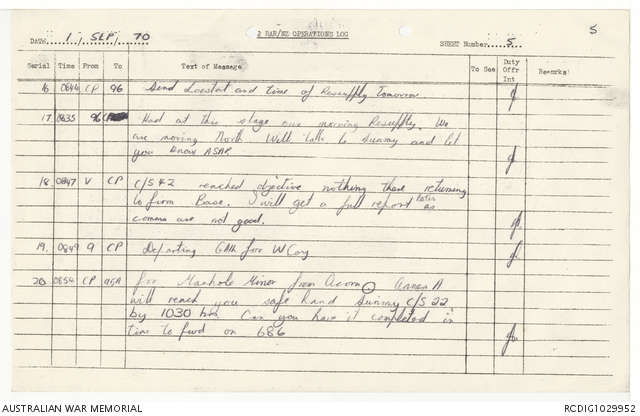 5
DATE 1, SEP, 70 2 RAR/NZ OPERATIONS LOG SHEET Number 5
Serial Time From To Text of Message To See Duty Offr Int Remarks
16 0844 CP 96 Send Locstat and time of Resupply tomorrow
17 0835 96 CP Had at this stage our morning Resupply. We
are moving North. Will talk to Sunray and let
you know ASAP
18 0847 V CP C/S 42 reached objective nothing there returning
to firm Base. I will get a full report later as
comms are not good.
19. 0849 9 CP Departing for W Coy
20 0854 CP For Manhole Minor from Acorn Annex A
will reach you safe hand Sunray C/S 22
by 1030 hrs Can you have it completed in
time to fwd on 686
AUSTRALIAN WAR MEMORIAL RCDIG1029952